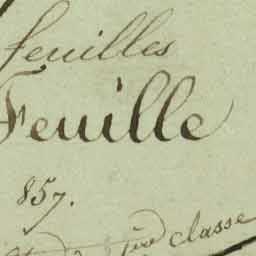 feuilles
Feuille
857.
classe